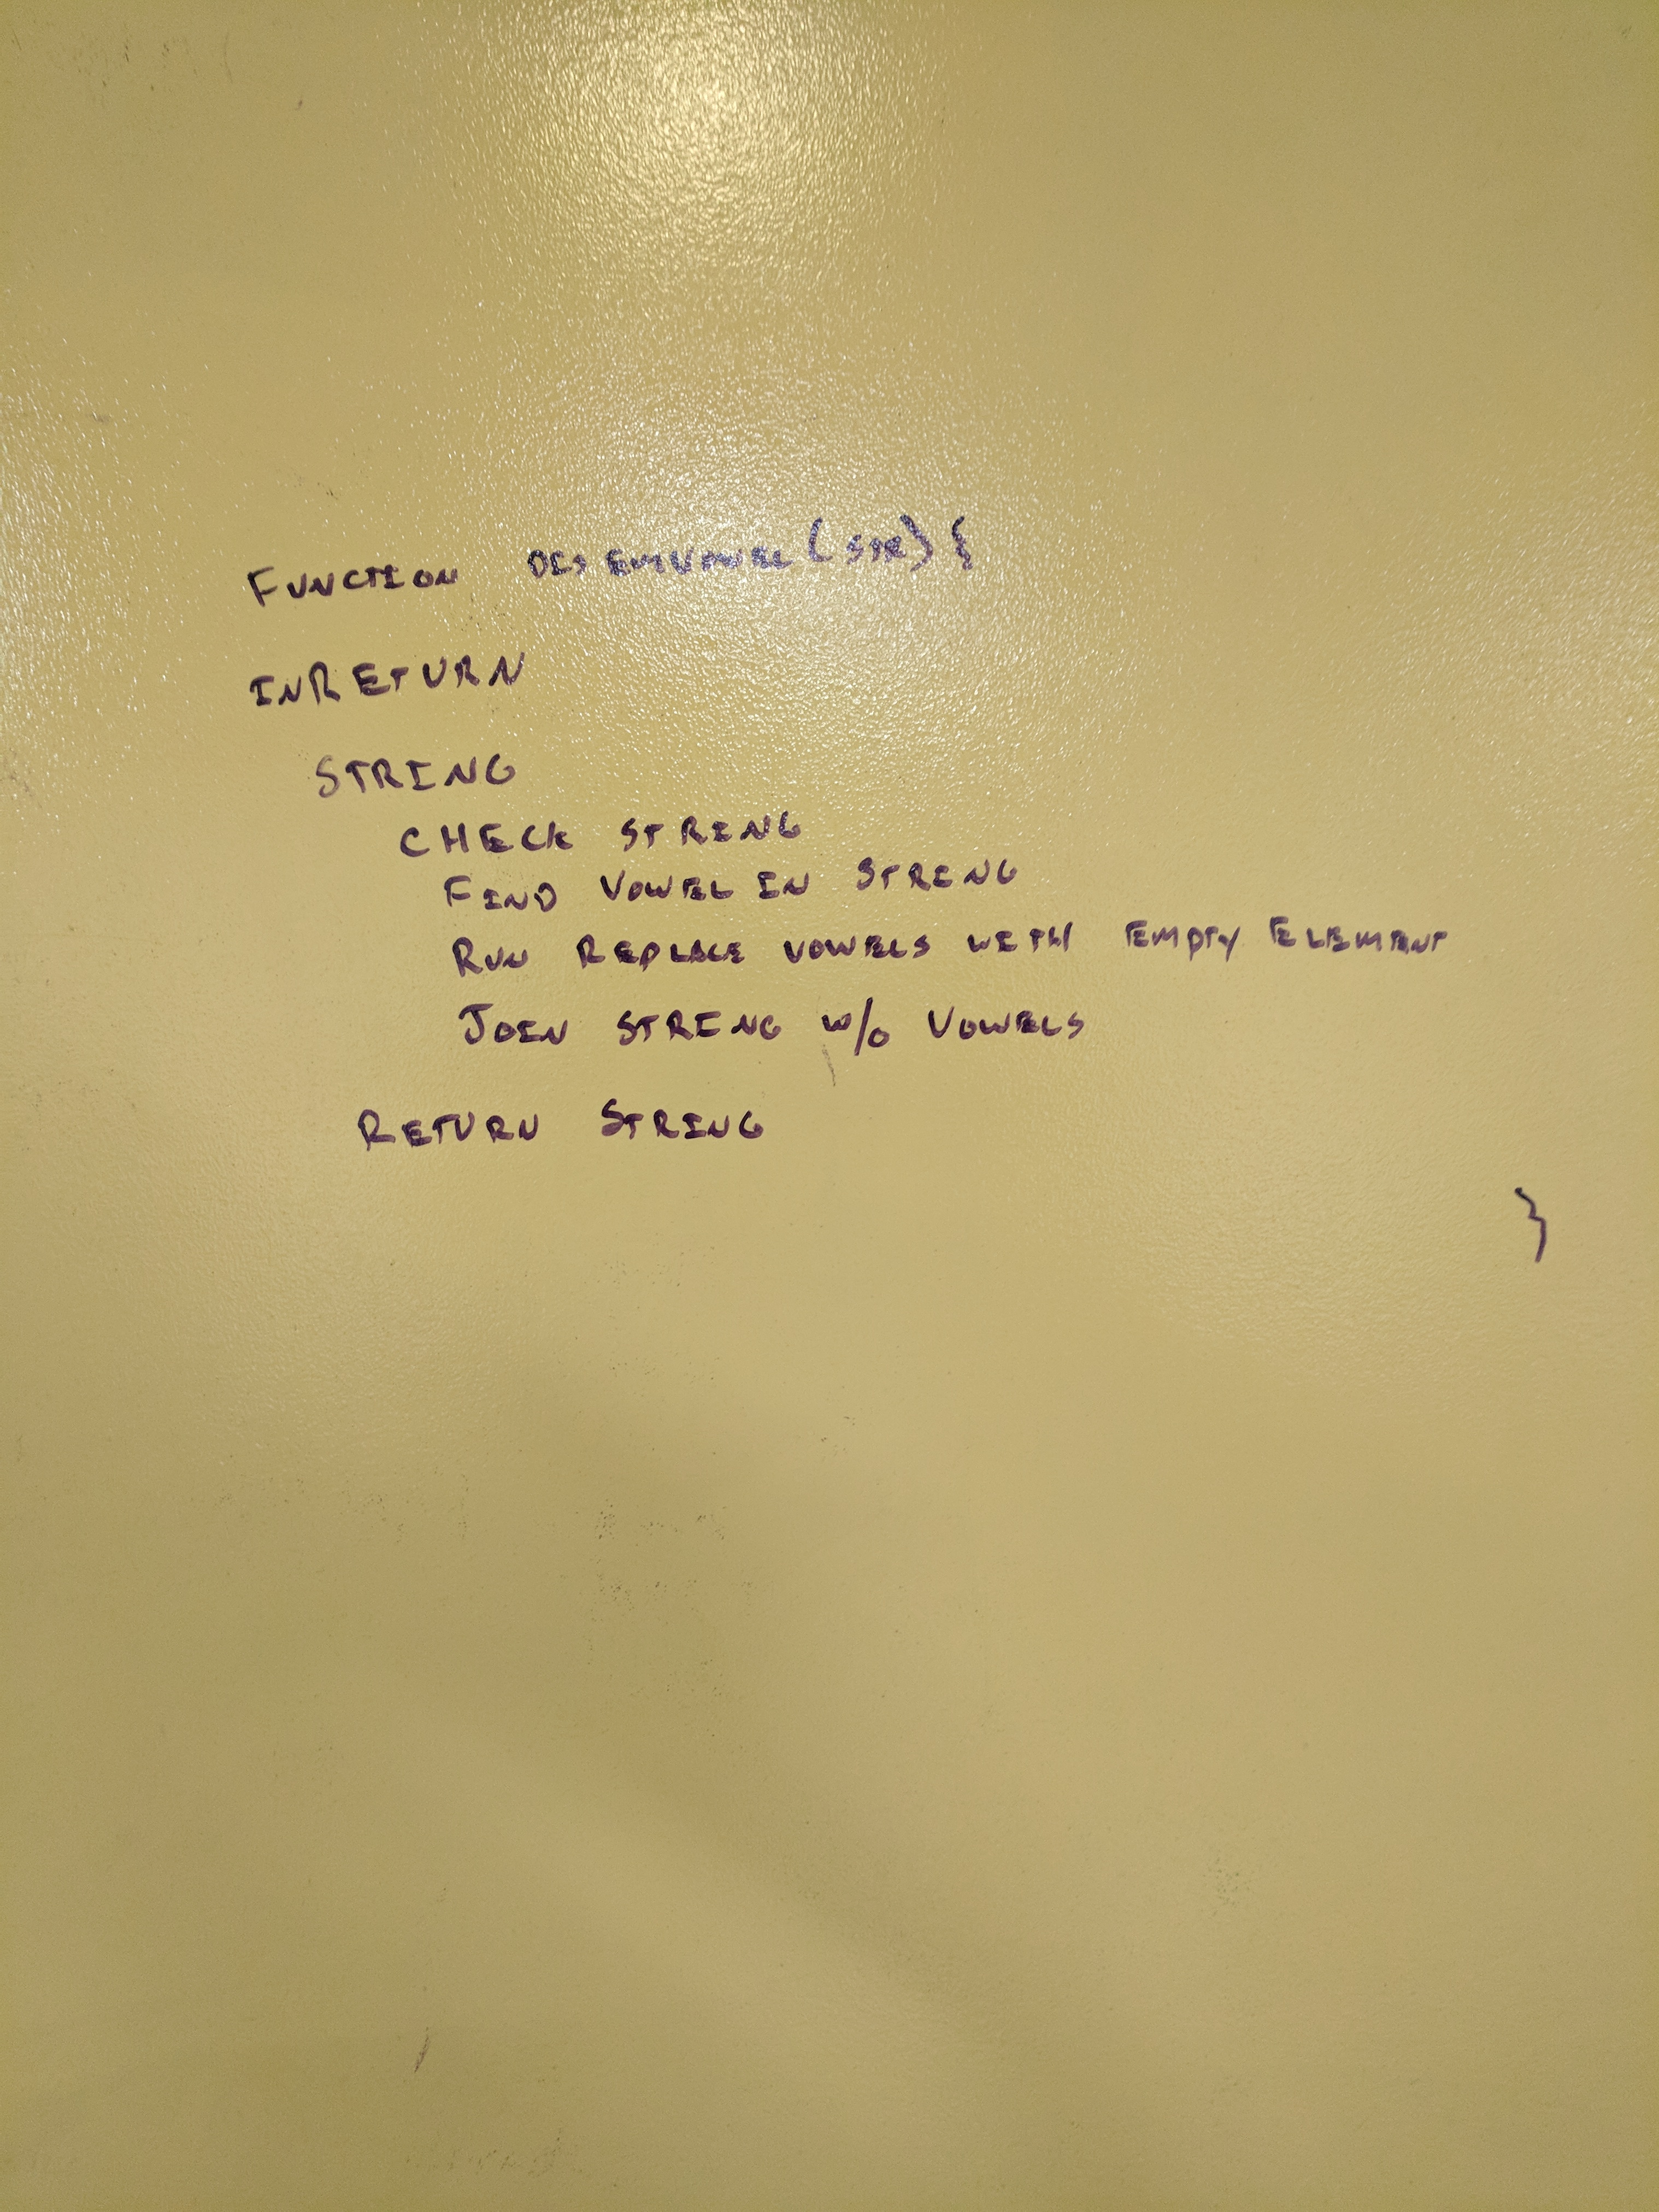 FUNCTION DISEMVOWEL (STR) {
INRETURN
STRING
CHECK STRING
FIND VOWEL IN STRING
RUN REPLACE VOWELS WITH EMPTY ELEMENT
JOIN STRING W/O VOWELS
RETURN STRING
}